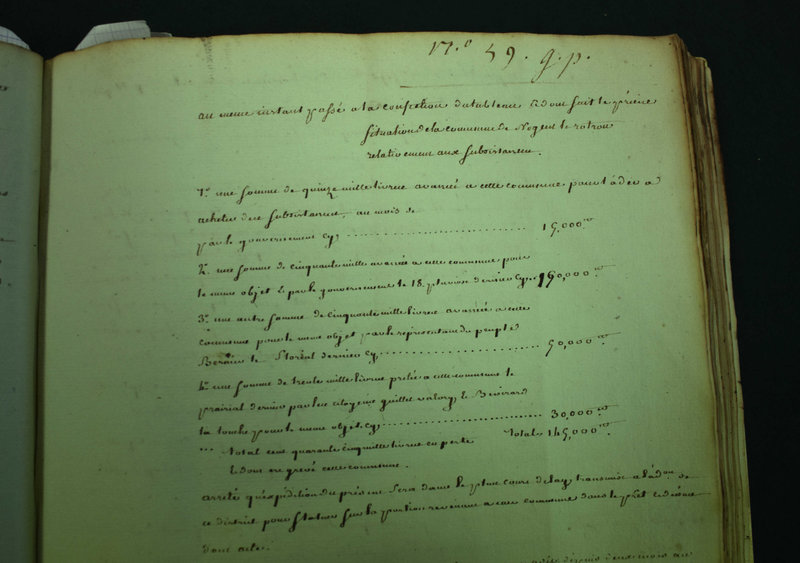 n.º 59. g.p.
au meme instant passé a la confection du tableau & dont suit le
Situation de la commune de Nogent le rotrou
relativement aux subsistances.
1.º une somme de quinze mille livres avancée a cette commune pour l'aider a
acheter des subsistances, au mois de
par le gouvernement cy, 15,000
2.º une somme de cinquante mille avancée a cette commune pour
le meme objet & par le gouvernement le 18. pluviose dernier cy, 50,000
3.º une autre somme de cinquante mille livres avancée a cette
commune pour le meme objet par le representant du peuple
le floréal dernier cy, 50,000
4.º une somme de trente mille livres pretée a cette commune le
prairial dernier par les citoyens guillet valory &
la touche pour le meme objet, cy, 30,000
total cent quarante cinq mille livres en perte Total 145,000
& dont est grevé cette commune.
arrêté qu'expédition du présent Sera dans le plus court delay transmise a l'ad.on de
ce district pour statuer sur la portion revenant a cette commune dans le prêt cidessus
dont acte.